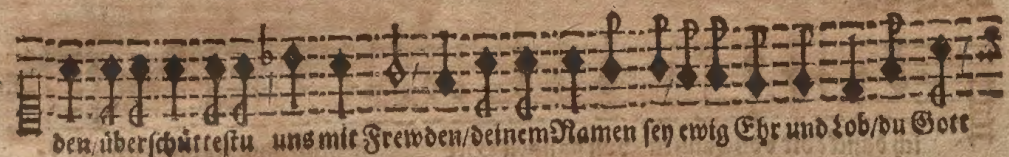 den/überschüttestu uns mit Frewden/deinem Namen sey ewig Ehr und Lob/du Gott